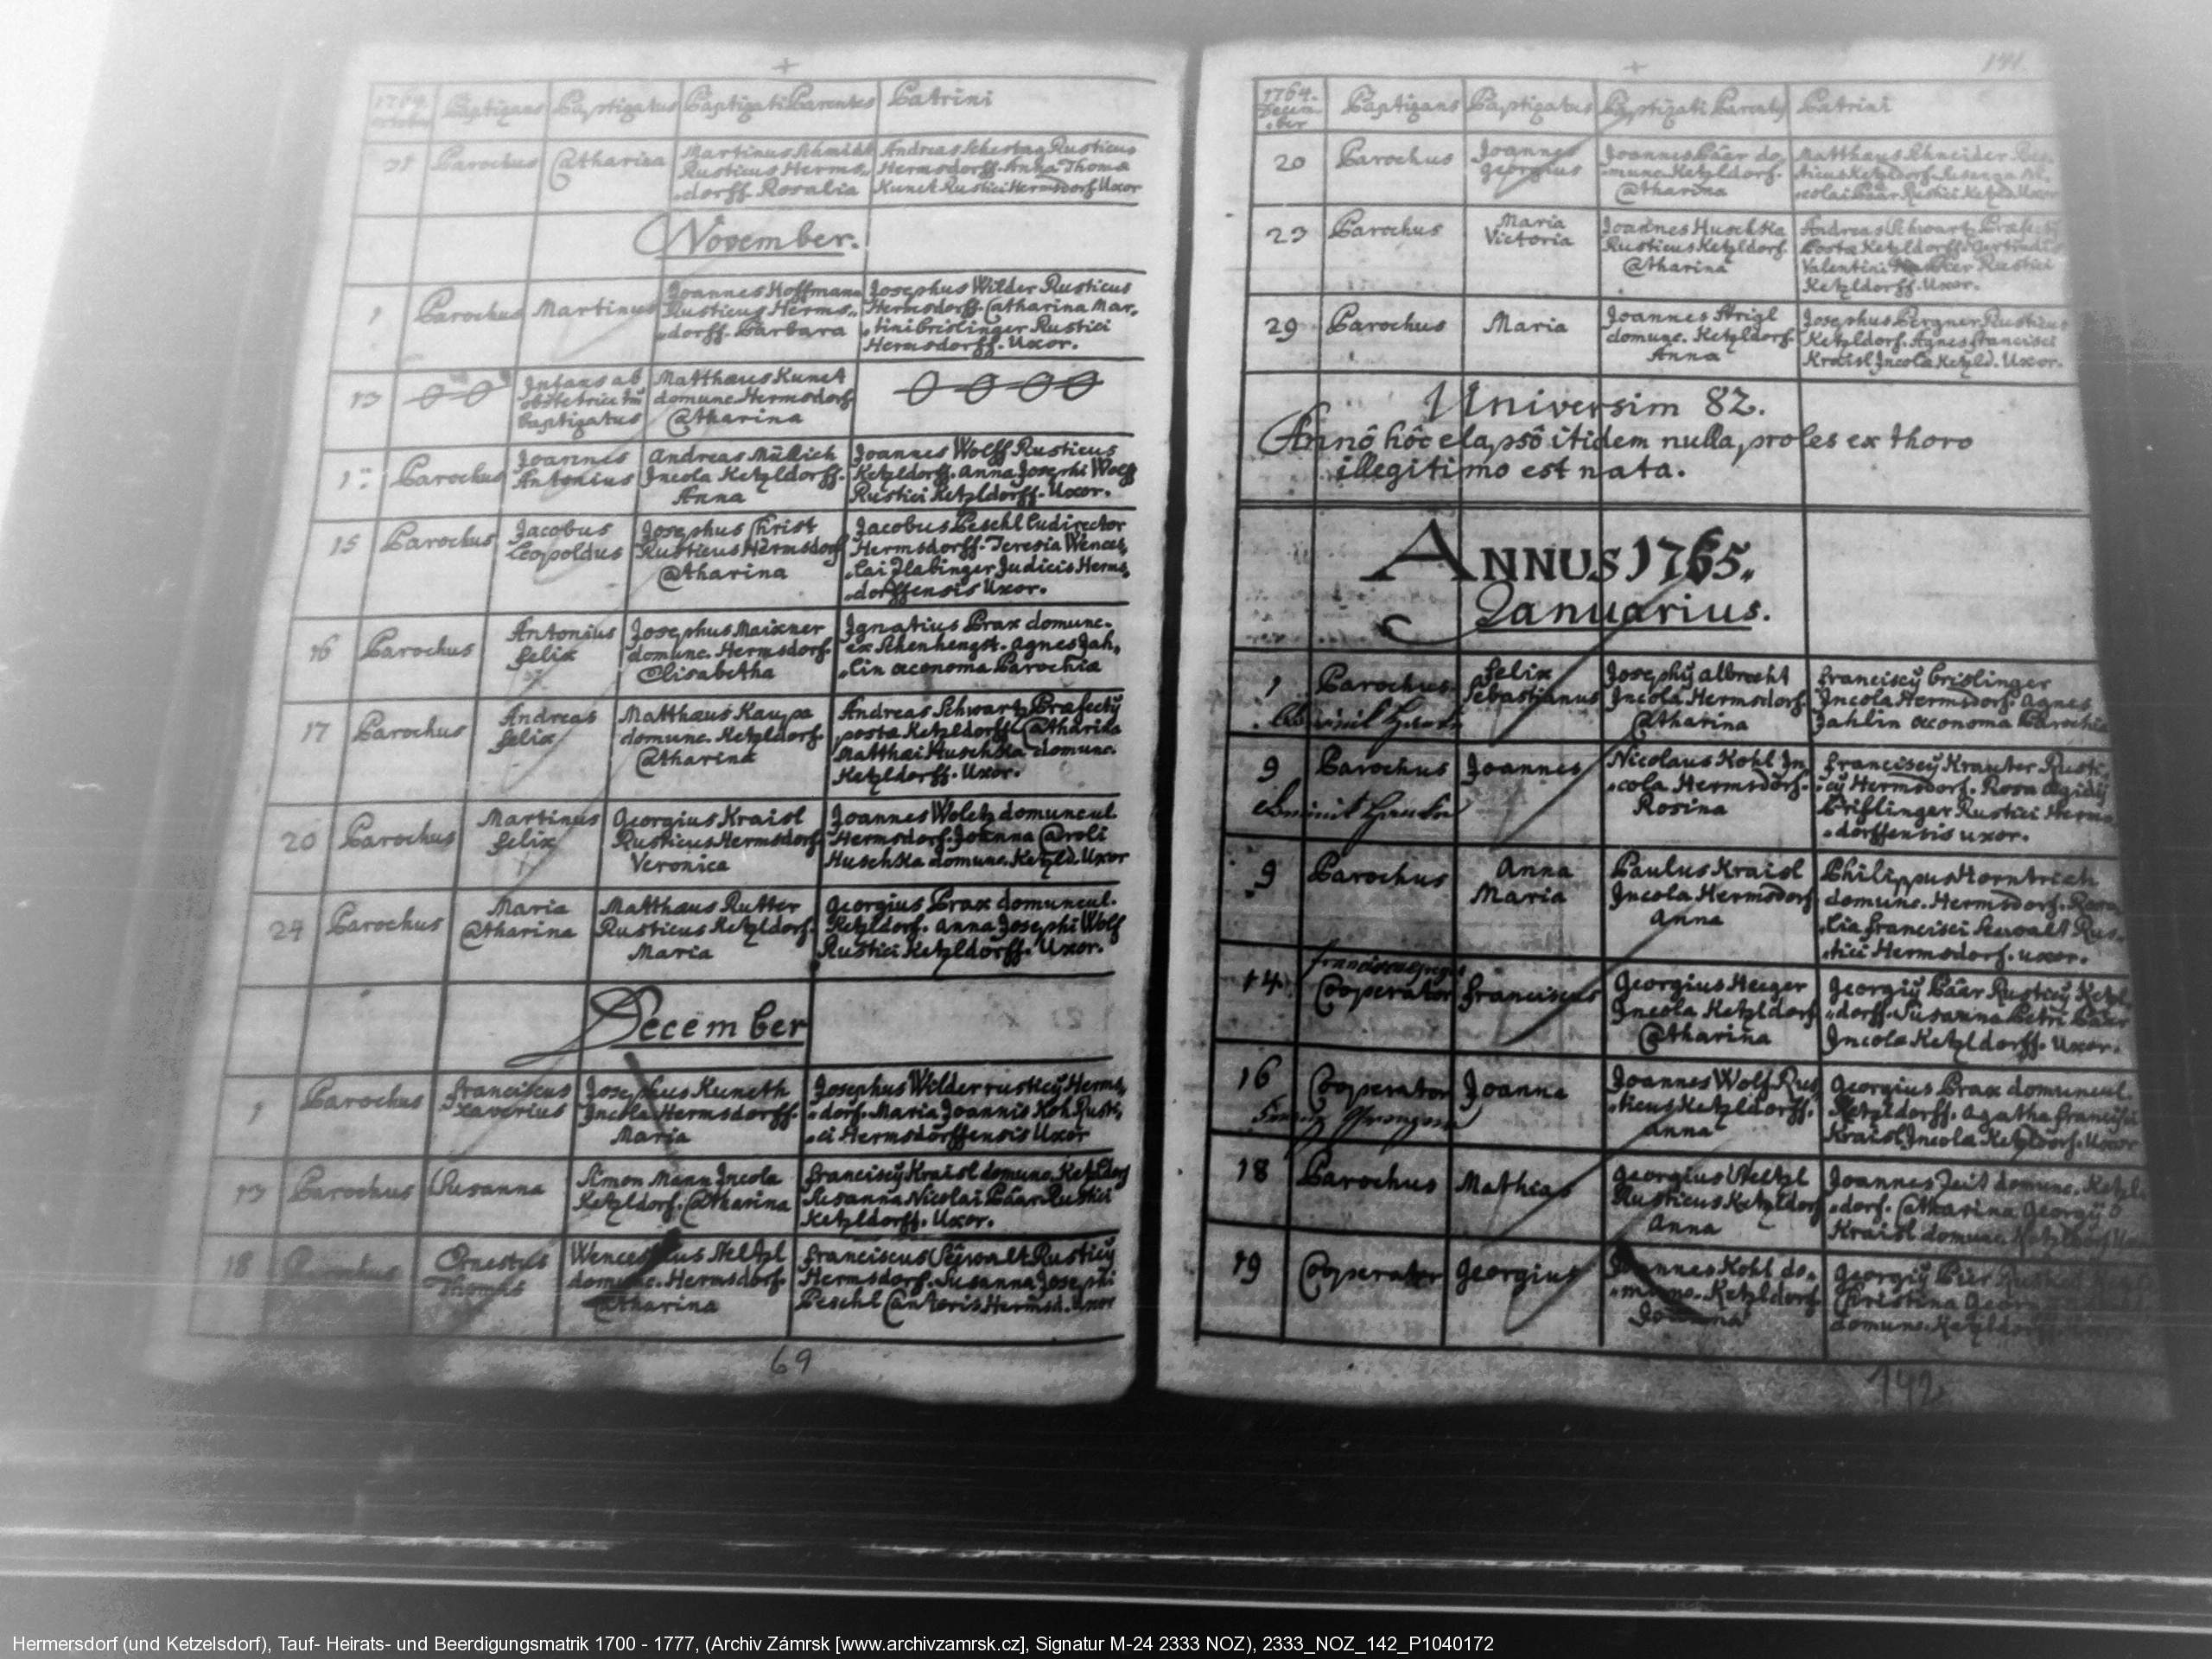 +
1764. Baptizans Baptizatus Baptizati Parentes Patrini
31 Parochus Catharina Martinus Schmidt
Rusticus Herms„
„dorff. Rosalia
Andreas Rusticus
Hermsdorff. Anna Thoma
Kunct Rustici Hermsdorf. Uxor
November.
1 Parochus Martinus Joannes Hoffmann
Rusticus Herms„
„dorff. Barbara
Josephus Wilder Rusticus
Hermsdorff. Catharina Mar„
„tini Brislinger Rustici
Hermsdorff. Uxor.
13 Infans ab
obstetrice
baptizatus
Matthæus Kunct
domunc. Hermsdorf.
Catharina
Parochus Joannes
Antonius
Andreas Müllich
Incola Ketzldorff.
Anna
Joannes Wolff Rusticus
Ketzldorff. Anna Josephi Wolff
Rustici Ketzldorff. Uxor.
15 Parochus Jacobus
Leopoldus
Josephus Christ
Rusticus Hermsdorf
Catharina
Jacobus Peschl Ludirector
Hermsdorff. Teresia Wences„
„lai Habinger Judicis Herms„
„dorffensis Uxor.
16 Parochus Antonius
Felix
Josephus Maixner
domunc. Hermsdorf.
Elisabetha
Ignatius Brax domunc.
ex Schenhengst. Agnes Jah„
„lin œconoma Parochiæ
17 Parochus Andreas
Felix
Matthæus Kaupa
domunc. Ketzldorf.
Catharina
Andreas Schwartz Præfecty
postæ Ketzldorff. Catharina
Matthæi Huschka domunc.
Ketzldorff. Uxor.
20 Parochus Martinus
Felix
Georgius Kraisl
Rusticus Hermsdorf.
Veronica
Joannes Woletz domuncul.
Hermsdorf. Joanna Caroli
Huschka domunc. Ketzld. Uxor
24 Parochus Maria
Catharina
Matthæus Rutter
Rusticus Ketzldorf.
Maria
Georgius Brax domuncul.
Ketzldorf. Anna Josephi Wolf
Rustici Ketzldorff. Uxor.
December
1 Parochus Franciscus
Xaverius
Josephus Kuneth
Incola Hermsdorff.
Maria
Josephus Wilder rusticy Herms„
„dorf. Maria Joannis Koh Rusti„
„ci Hermsdorffensis Uxor
13 Parochus Susanna Simon Mann Incola
Ketzldorf. Catharina
Franciscy Kraisl domunc. Ketzldorf
Susanna Nicolai Bäar Rustici
Ketzldorff. Uxor.
18 Parochus Ernestus
Thomas
Wenceslaus Steltzl
domunc. Hermsdorf.
Catharina
Franciscus Seywalt Rusticy
Hermsdorf. Susanna Josephi
Peschl Cantoris Hermsd. Uxor
69
+
141
1764.
Decem„
„ber
Baptizans Baptizatus Baptizati Parentes Patrini
20 Parochus Joannes
Georgius
Joannes Bäer do„
„munc. Ketzldorf.
Catharina
Matthæus Schneider Rus„
„ticus Ketzldorf. Susanna Ni„
„colai Bäar Rustici Ketzld. Uxor
23 Parochus Maria
Victoria
Joannes Huschka
Rusticus Ketzldorf.
Catharina
Andreas Schwartz Præfecty
Postæ Ketzldorff. Gertrudis
Valentini Rustici
Ketzldorff. Uxor.
29 Parochus Maria Joannes Strigl
domunc. Ketzldorf.
Anna
Josephus Bergner Rusticus
Ketzldorf. Agnes Francisci
Kraisl Incolæ Ketzld. Uxor.
Universim 82.
Annô hôc elapsô itidem nulla proles ex thoro
illegitimo est nata.
ANNUS 1765.
Januarius.
1 Parochus Felix
Sebastianus
Josephy Albrecht
Incola Hermsdorf.
Catharina
Franciscy Brislinger
Incola Hermsdorf. Agnes
Jahlin œconoma Parochiæ
9 Parochus Joannes Nicolaus Kohl In„
„cola Hermsdorf.
Rosina
Franciscy Krauter Rusti„
„cy Hermsdorf. Rosa Ægidy
Brislinger Rustici Herms„
„dorffensis uxor.
9 Parochus Anna
Maria
Paulus Kraisl
Incola Hermsdorf
Anna
Philippus Horntrich
domunc. Hermsdorf. Rosa„
„lia Francisci Seewalt Rus„
„tici Hermsdorf. uxor.
14. Cooperator Franciscus Georgius Heeger
Incola Ketzldorf
Catharina
Georgiy Bäer Rusticy Ketzl„
„dorff. Susanna Petri Bäer
Incolæ Ketzldorff. Uxor.
16 Cooperator Joanna Joannes Wolf Rus„
„ticus Ketzldorff.
Anna
Georgius Brax domuncul.
Ketzldorff. Agatha Francisci
Kraisl Incolæ Ketzldorf. Uxor
18 Parochus Mathias Georgius Steltzl
Rusticus Ketzldorf
Anna
Joannes Zeit domunc. Ketzl„
„dorf. Catharina Georgy
Kraisl domunc. Ketzldorf
19 Cooperator Georgius Joannes Kohl do„
„munc. Ketzldorf.
Joanna
Georgiy Bier
Christina
domunc. Ketzldorff.
142
Hermersdorf (und Ketzelsdorf), Tauf- Heirats- und Beerdigungsmatrik 1700 - 1777, (Archiv Zámrsk [www.archivzamrsk.cz], Signatur M-24 2333 NOZ), 2333_NOZ_142_P1040172